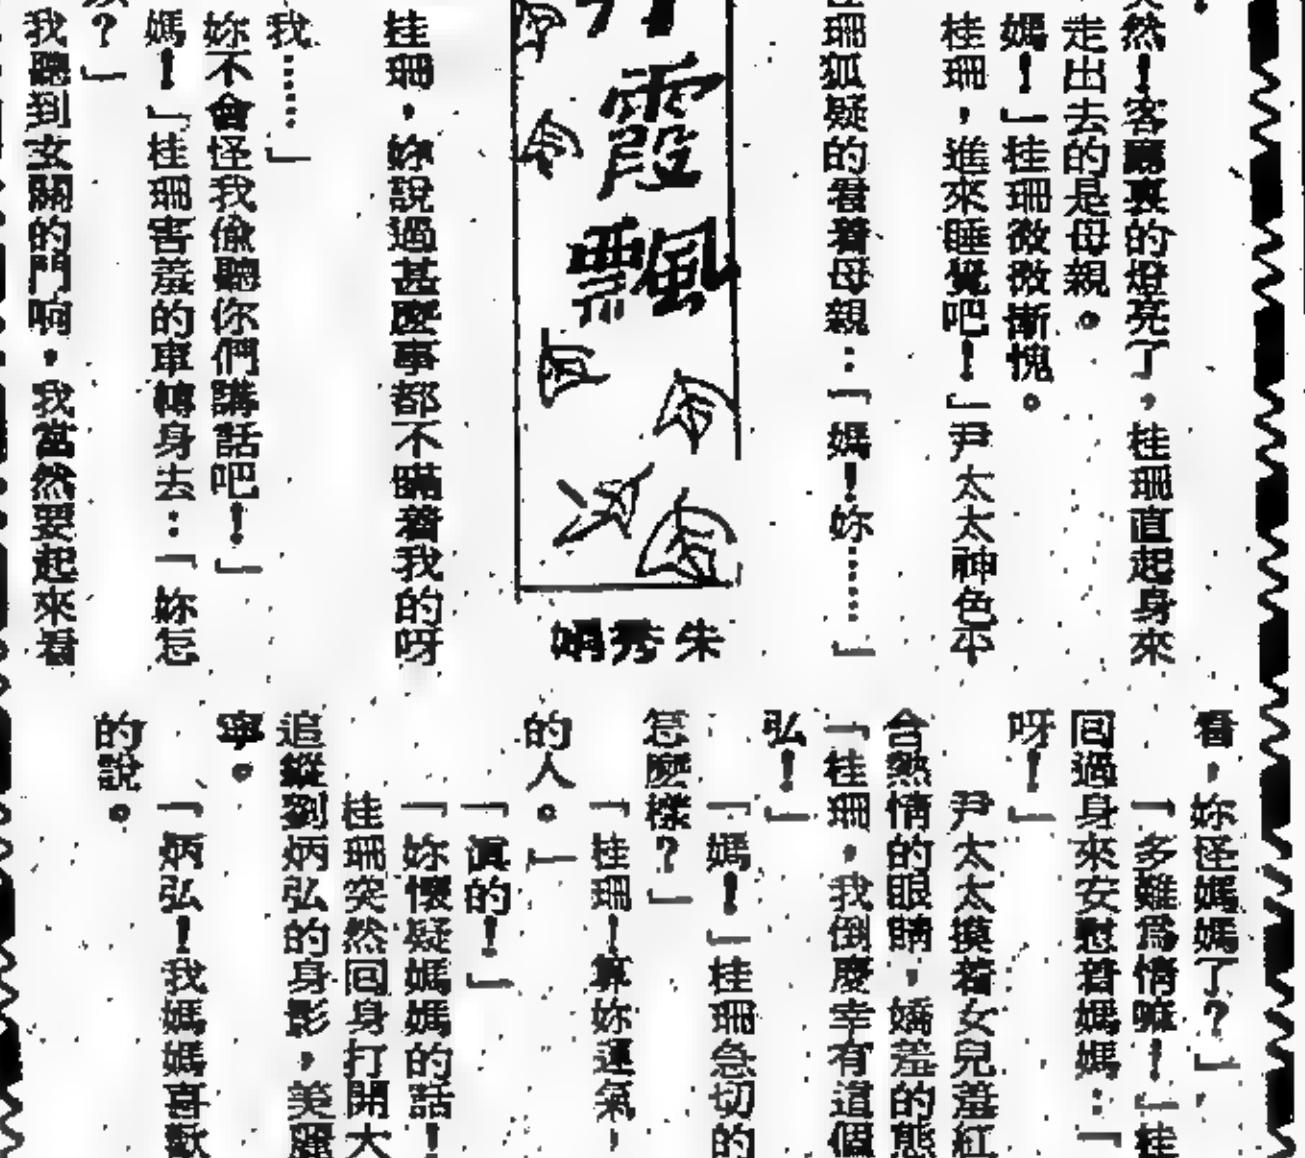 然！客廳裏的燈亮了，桂珊直起身來
走出去的是母親。
媽！」桂珊微微慚愧。
桂珊，進來睡覺吧！」尹太太神色平
珊狐疑的看着母親：「媽！妳……」
霞飄
朱秀娟
桂珊，妳說過甚麼事都不瞞着我的呀
我……」
妳不會怪我偷聽你們講話吧！」
媽！」桂珊害羞的車轉身去：「妳怎
？」
我聽到女關的門响，我當然要起來看
看，妳怪媽媽了？」
「多難爲情嘛！」桂
回過身來安慰着媽媽：「
呀！」
尹太太摸着女兒羞紅
含熱情的眼睛，嬌羞的態
「桂珊，我倒慶幸有這個
弘！」
「媽！」桂珊急切的
怎麼樣？」
「桂珊！算妳運氣！
的人。」
「眞的！」
「妳懷疑媽媽的話！
桂珊突然回身打開大
追蹤劉炳弘的身影，美麗
寧。
「炳弘！我媽媽喜歡
的說。